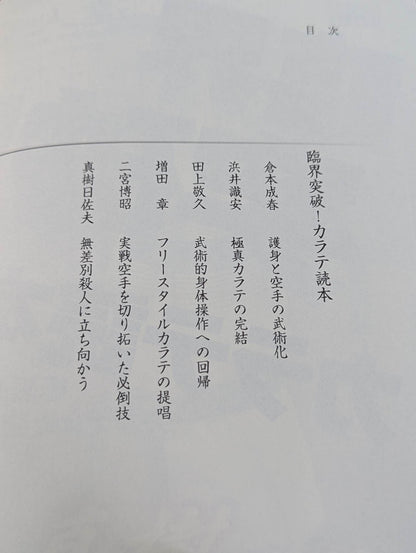 目次
臨界突破！カラテ読本
倉本成春　護身と空手の武術化
浜井識安　極真カラテの完結
田上敬久　武術的身体操作への回帰
増田　章　フリースタイルカラテの提唱
二宮博昭　実戦空手を切り拓いた必倒技
真樹日佐夫　無差別殺人に立ち向かう